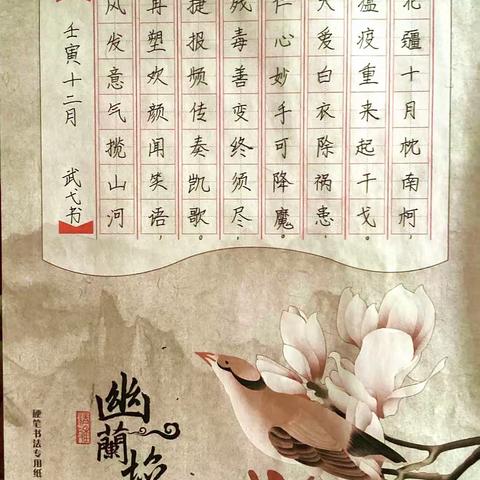 疆十月枕南柯
瘟疫重来起干戈
大爱白衣除祸患
仁心妙手可降魔
残毒善变终须尽
捷报频传奏凯歌
再塑欢颜闻笑语
风发意气揽山河
壬寅十二月 武戈书
幽蘭
硬笔书法专用纸